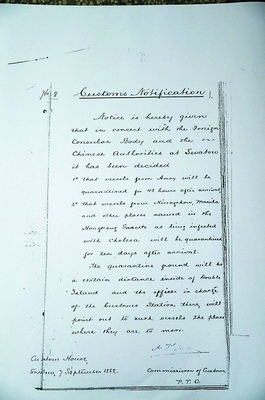 No. 8 Customs Notification 1.
Notice is hereby given
that in concert with the Foreign
Consular Body and the
Chinese Authorities at Swatow
it has been decided
1° that vessels from Amoy will be
quarantined for 48 hours after arrival
2° that vessels from Kiungchow, Manila
and other places named in the
Hongkong Gazette as being infected
with Cholera will be quarantined
for ten days after arrival.
The quarantine ground will be
a certain distance inside of Double
Island and the officer in charge
of the Customs Station there, will
point out to such vessels the place
where they are to moor.
Custom House,
Swatow, 7 September 1882.
Commissioner of Customs
P. T. O.